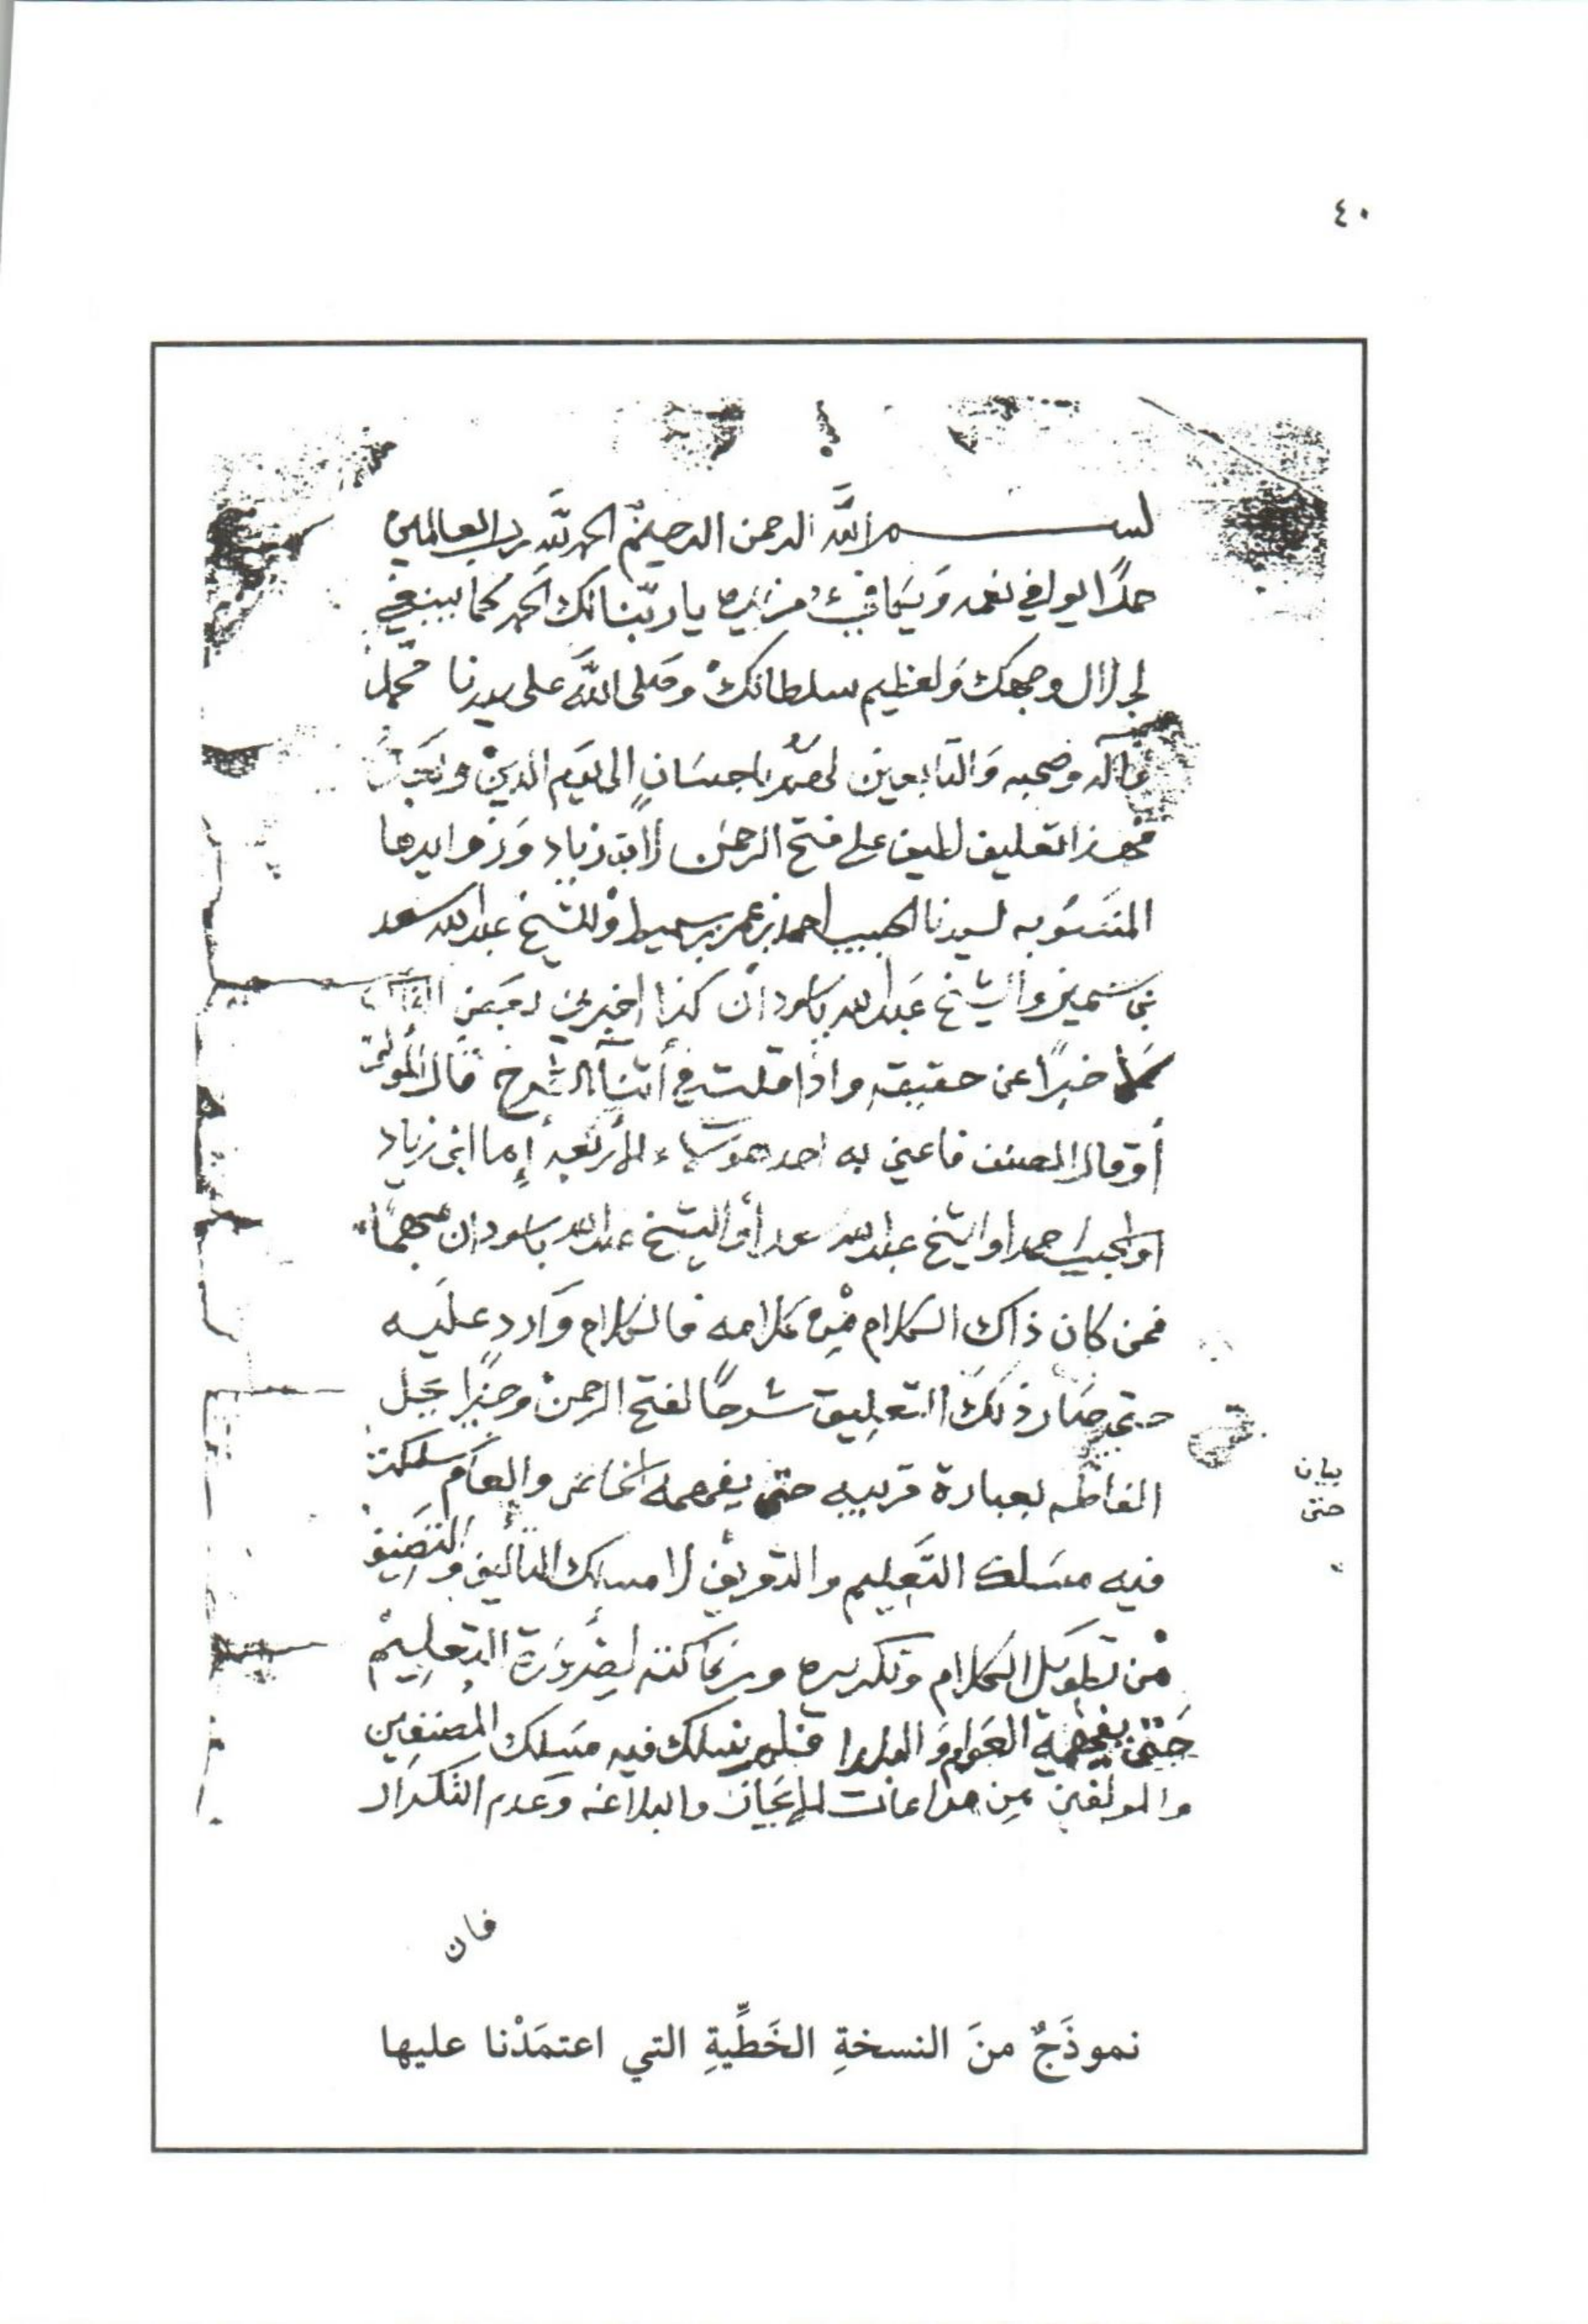 ٤٠
بســـــم الله الرحمن الرحيم الحمد لله رب العالمين
حمدًا يوافي نعمه وَيكافئ مزيده يا ربّنا لك الحمد كما ينبغي
لجلال وجهك وَلعظيم سلطانك وصَلى اللهَ على سيدنا محمد
وآله وصحبه وَالتابعين لهمُ بإحسَانٍ الى يوَم الدين وبَعَد
فهذا تعليق لطيف على فتح الرحمن لابن زياد وَزوايدها
المنسَوُبه لسيدنا الحبيب احمد بن عمر بن سميط وللشيخ عبدالله سعد
بن سَمير والشيخ عَبدالله باسودان كذا اخبرني بعَض
خبرًا عن حقيقه واذا قلت في أثنآء الشرح قال المؤلف
أو قال المصنف فاعني به احد هؤلآء الأربَعه إما ابن زياد
او الحبيب احمد او الشيخ عبدالله سعد أو الشيخ عبدالله باسودان
فمن كان ذاك الكلام مِن كلامه فالكلام وَارد علَيه
حتى صَار ذلكَ التعلِيق شرحًا لفتح الرحمن وجيزًا يحَل
الفاظه بعبارة قريبه حتى يفهمه الخاص والعَام سلكت
فيه مسَلك التعَليم والتعريف لا مسلك التأليف والتصَنِيف
من تطوَيل الكلام وتكريره وركاكته لضرُوَرة التعلِيم
حَتى يفهمه العَوام وَالبلدا فلم نسلك فيه مسَلك المصُنفِين
والمولفين مِن مراعات الإيجَاز والبلاغه وَعدم التكرَار
بيان
حتى
فان
نموذَجٌ منَ النسخةِ الخَطِّيةِ التي اعتمَدْنا عليها